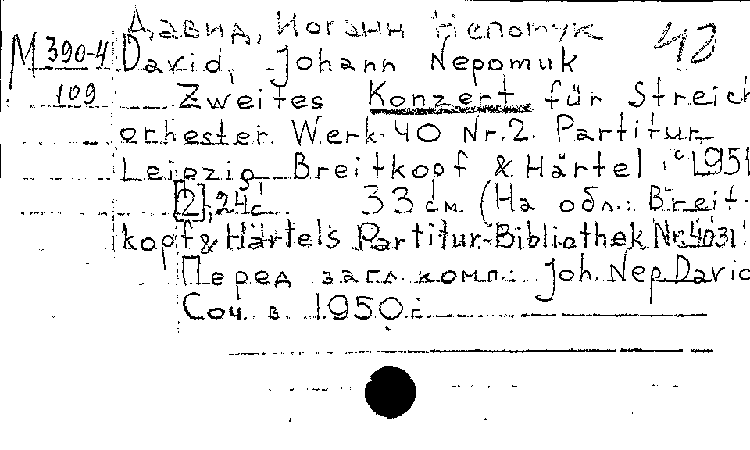 Давид, Иоганн Непомук
М 390-4 David, Johann Nepomuk
109 Zweites Konzert für Streich
orchester. Werk 40 Nr. 2. Partitur
Leipzig Breitkopf & Härtel, c 1951
[2], 24 с 33 см. (На обл.: Breit-
kopf & Härtels Partitur-Bibliothek Nr. 4031
Перед загл. комп.: Joh. Nep David
Соч. в 1950 г.